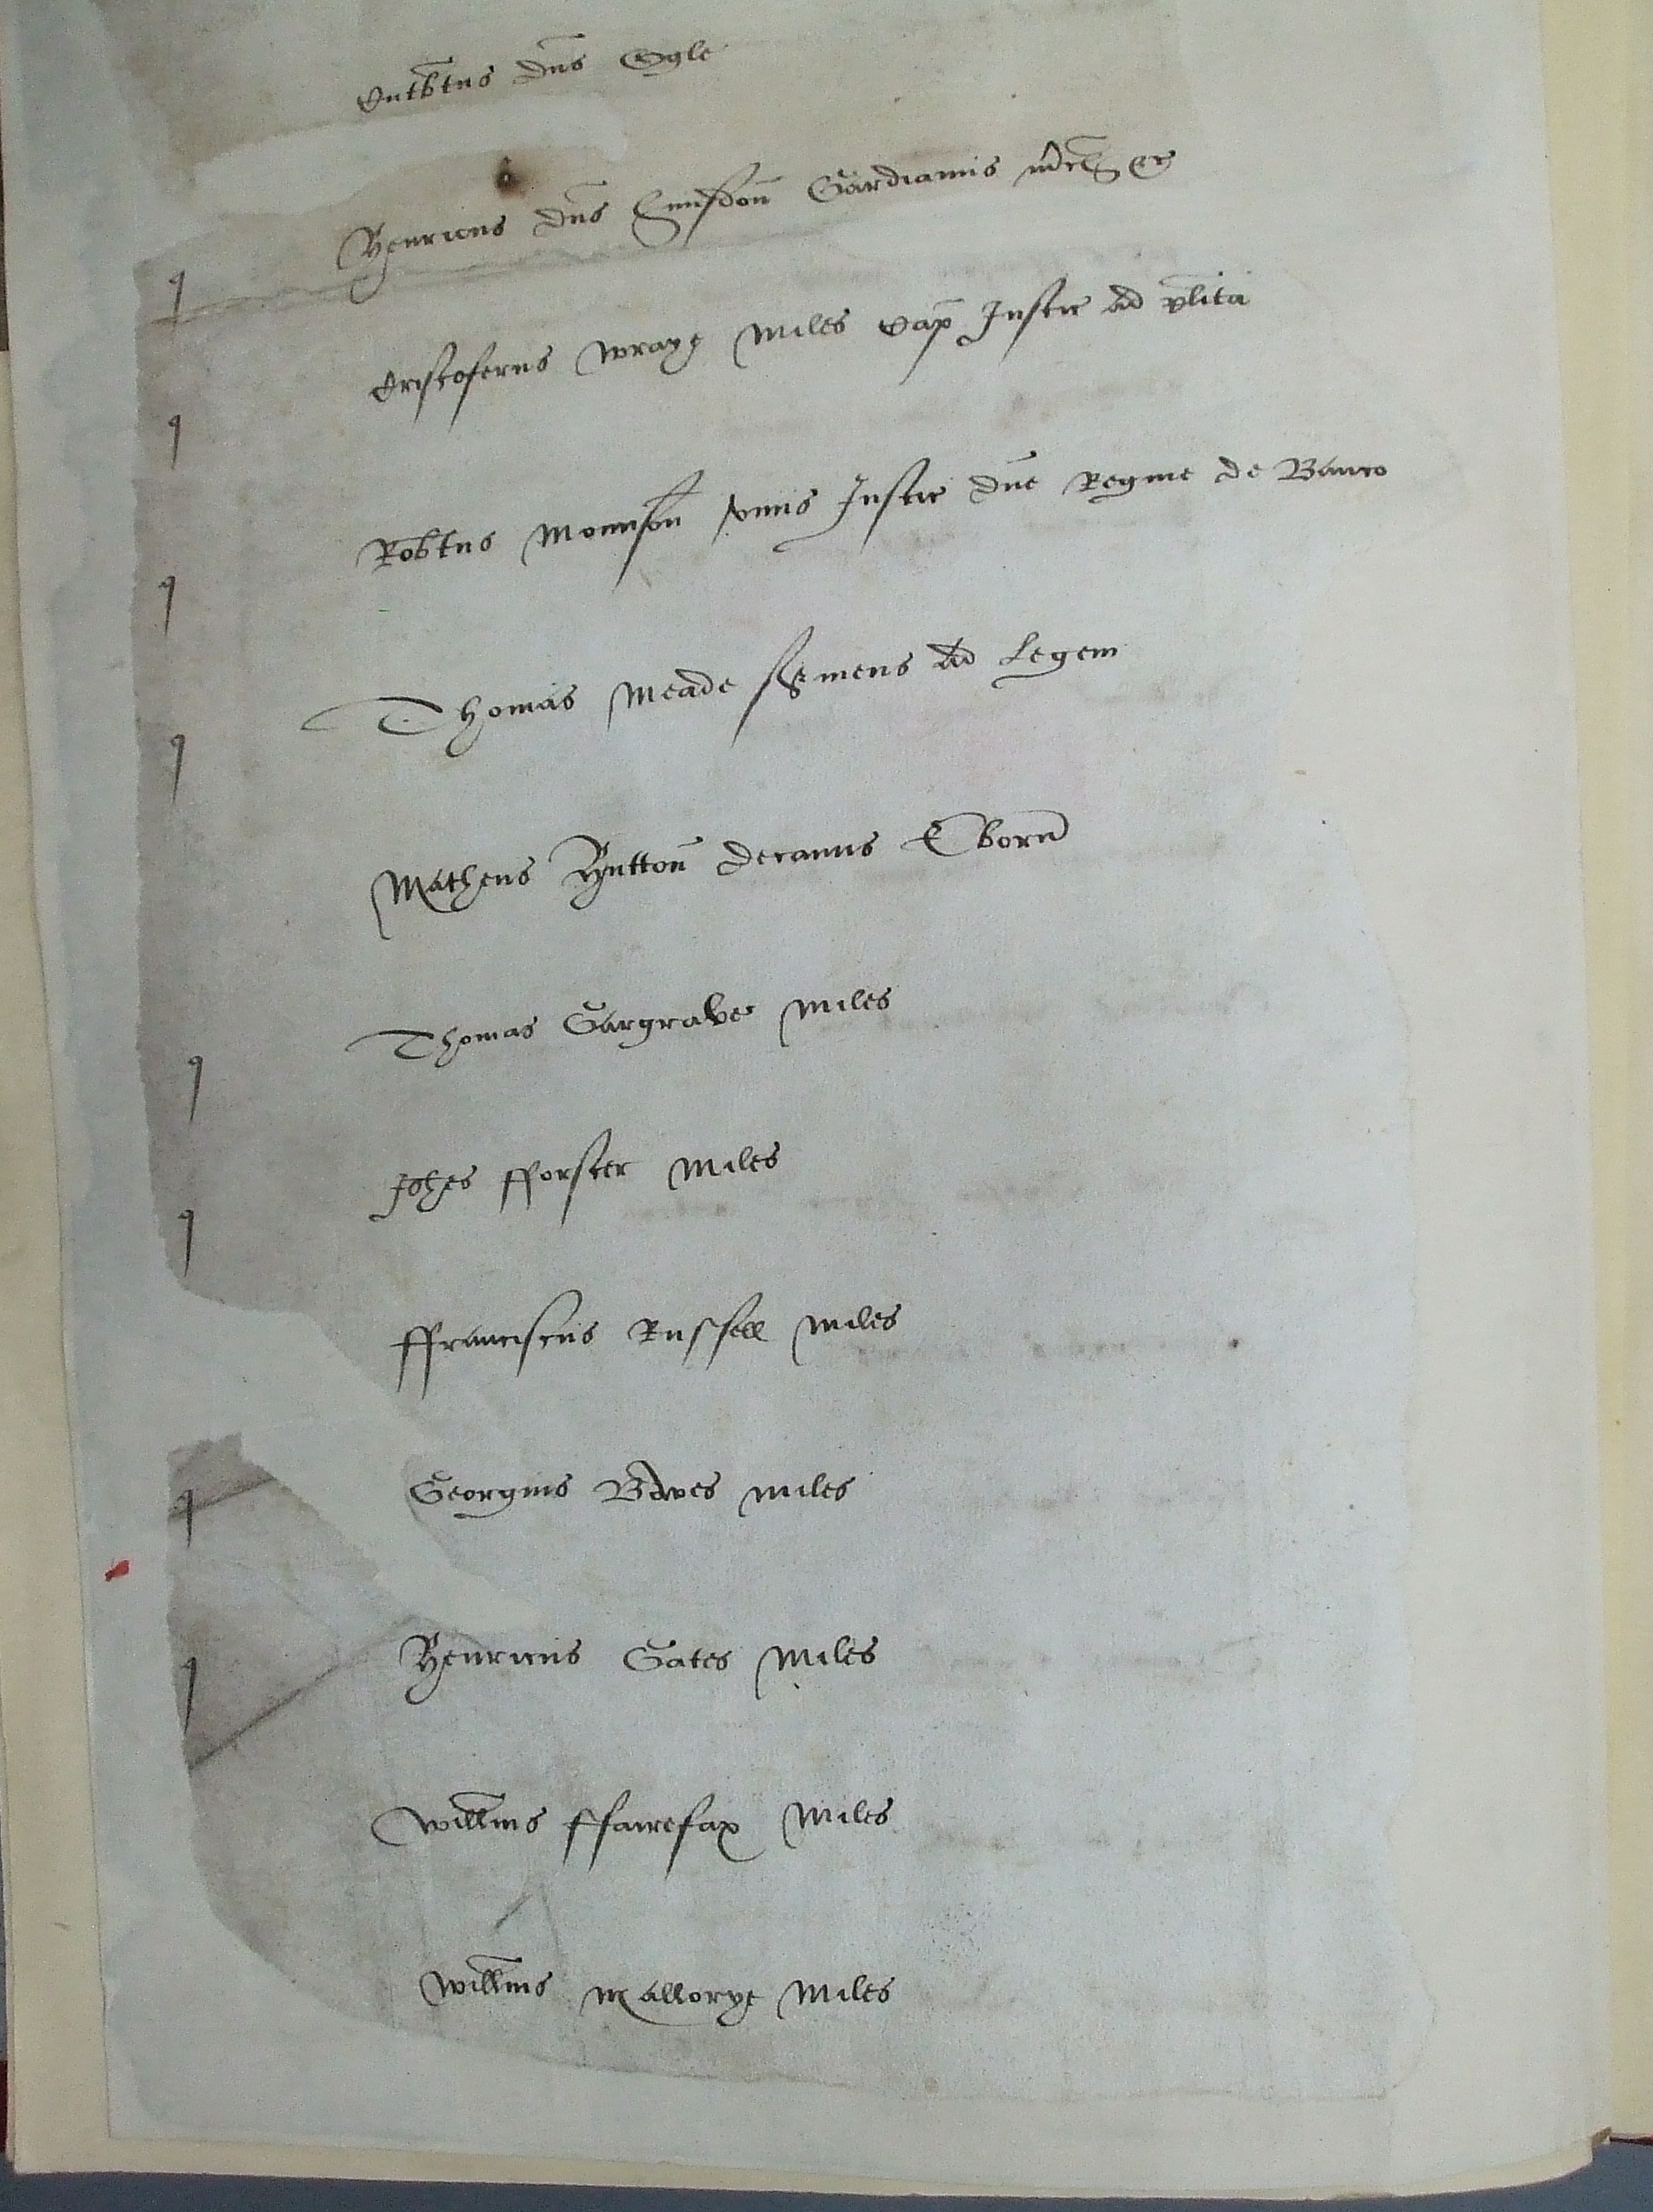 Cutbtus dns Ogle
Henricus dns Hunsdon Gardianus
Cristoferus Wraye Miles Cap Justic ad plita
Robtus Mounson unus Justic dne Regine de Banco
Thomas Meade ad Legem
Matheus Hutton decanus Eborū
Thomas Gargrave Miles
Johes fforster Miles
ffranciscus Russell Miles
Georgius Bowes miles
Henricus Gates Miles
Willms ffairefax Miles
Willms Mallorye Miles